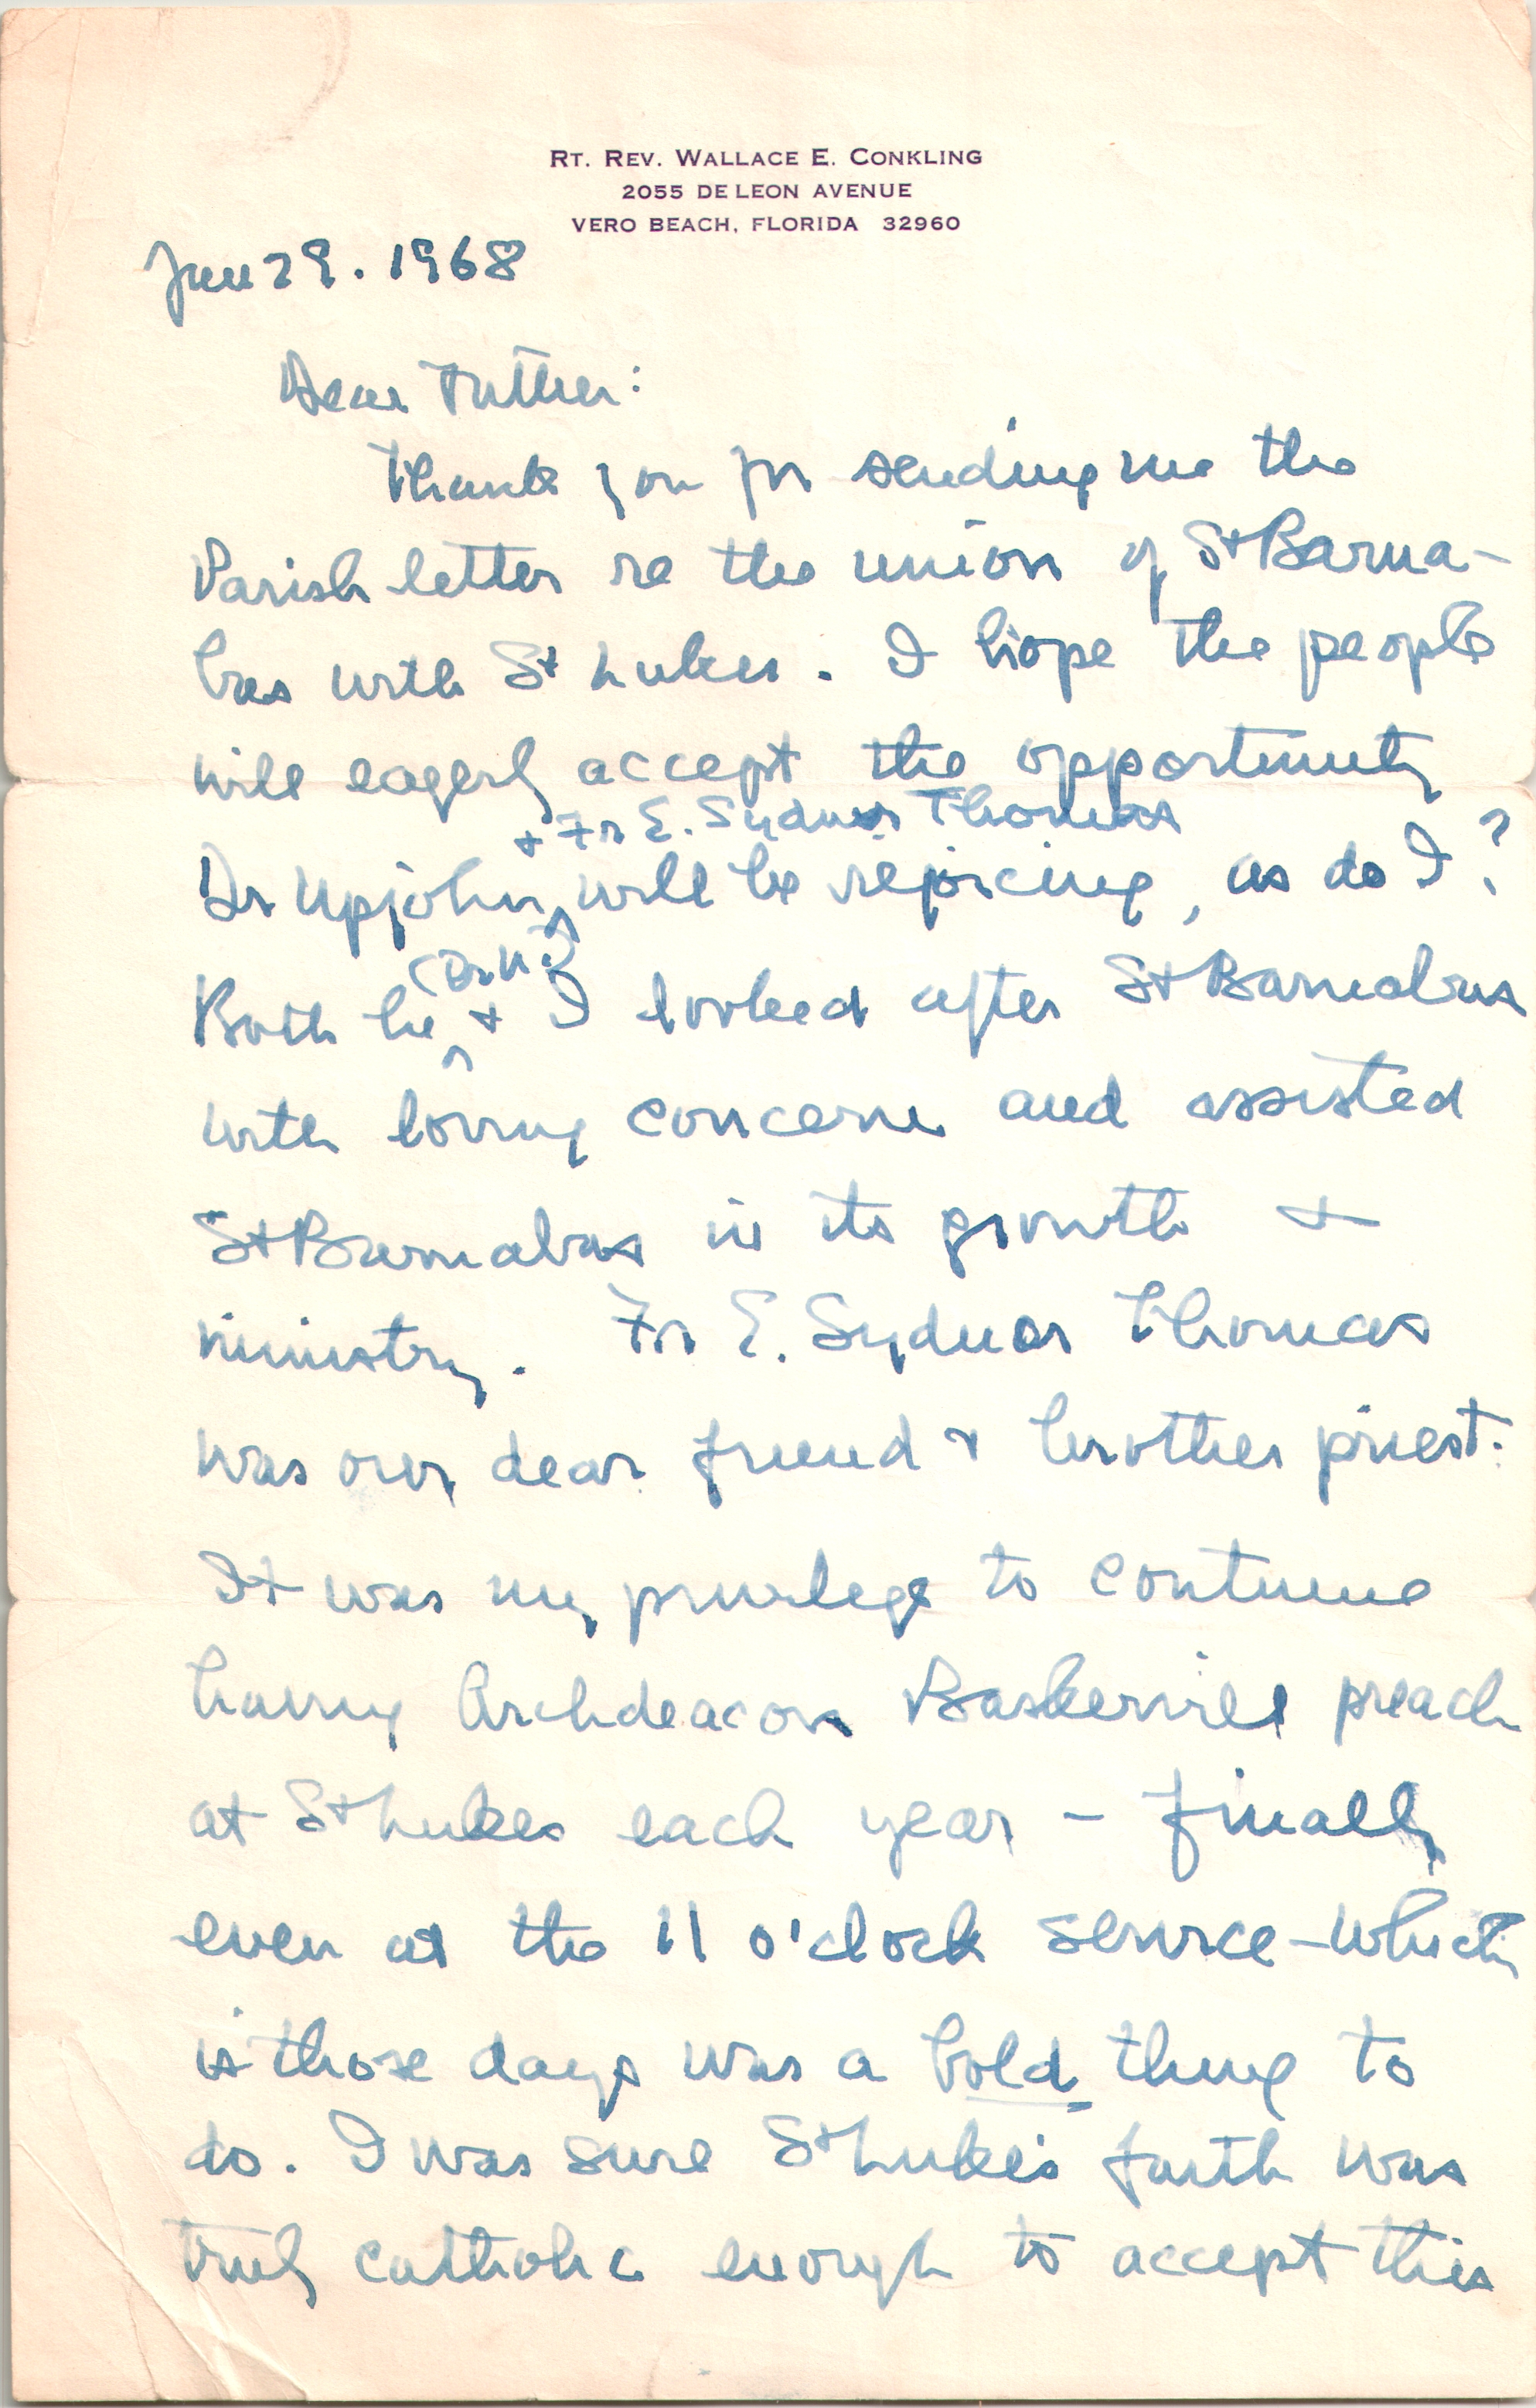 RT. REV. WALLACE E. CONKLING
2055 DE LEON AVENUE
VERO BEACH, FLORIDA 32960
Jan 29. 1968
Dear Father:
Thank you for sending me the
Parish letter re the union of St Barna-
bas with St Lukes. I hope the people
will eagerly accept the opportunity
+ Fr E. Sydnor Thomas
Dr Upjohn will be rejoicing, as do I!
(Dr U.)
Both he + I looked after St Barnabas
with loving concern and assisted
St Barnabas in its growth +
ministry. Fr E. Sydnor Thomas
was our dear friend + brother priest.
It was my privilege to continue
having Archdeacon Baskervill preach
at St Lukes each year - finally
even at the 11 o'clock service - which
in those days was a bold thing to
do. I was sure St Luke's faith was
truly catholic enough to accept this